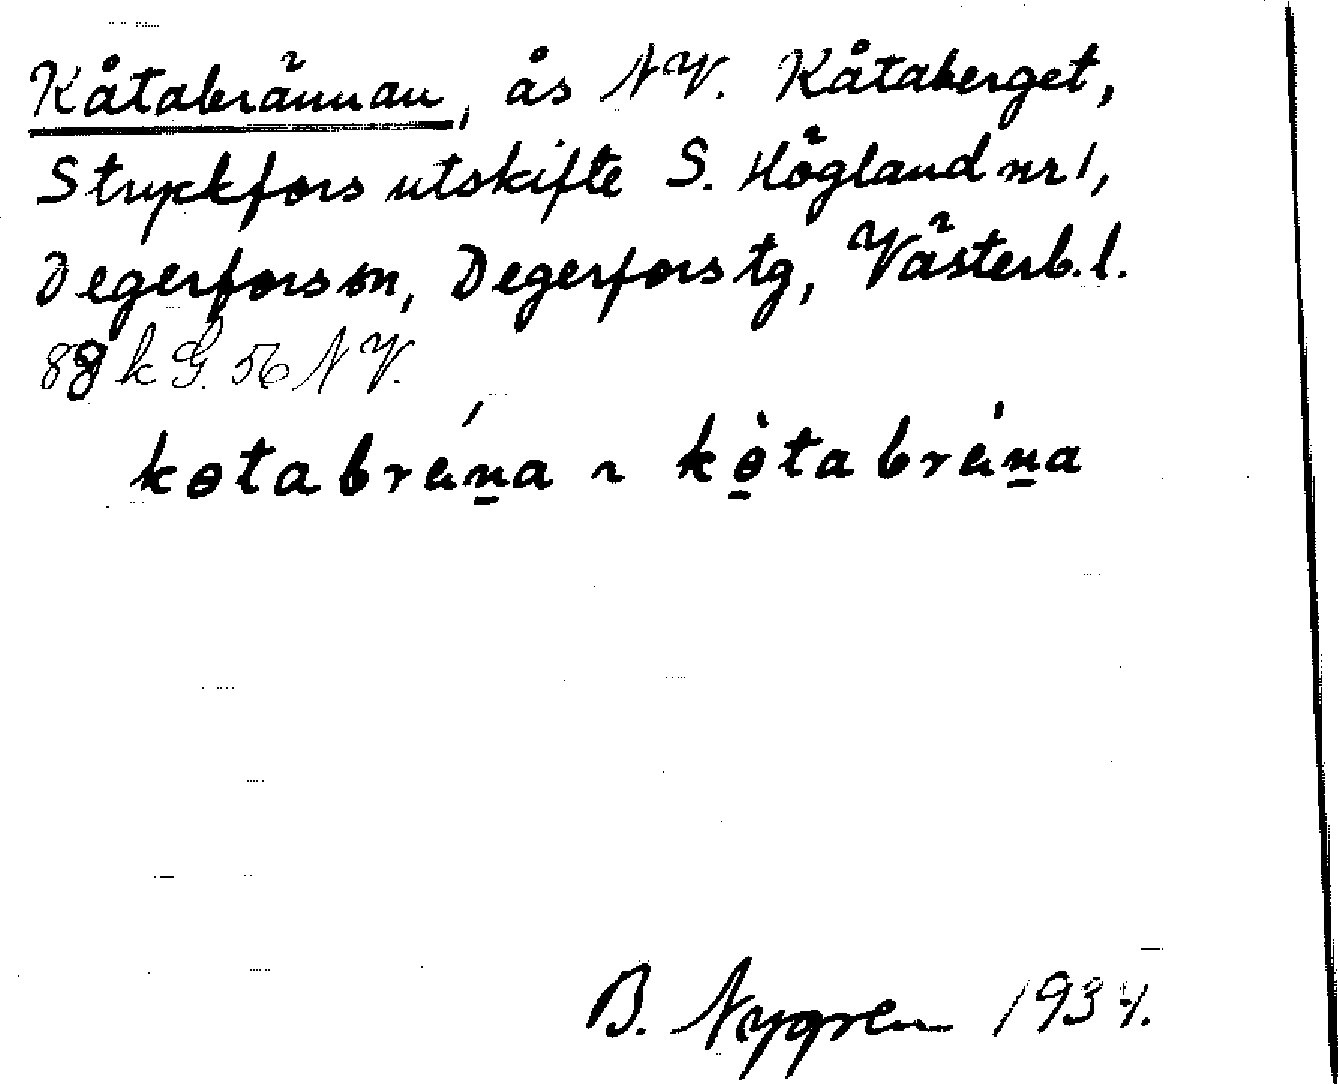 Kåtabrännan, ås NV. Kåtaberget,
Stryckfors utskifte S. Högland nr 1,
Degerfors sn, Degerfors tg, Västerb. l.
88 k G. 56 NV.
kɵtabráṉa ~ kɵ̱̀tabrȧṉa
B. Nygren 1934.